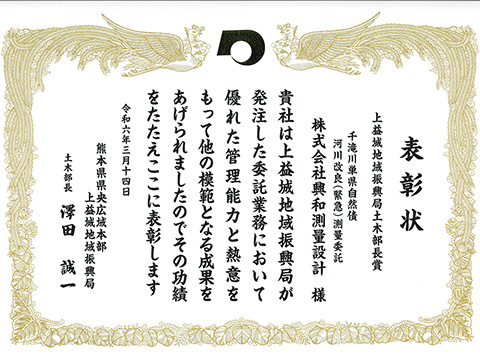 表彰状
上益城地域振興局土木部長賞
千滝川単県自然債
河川改良(緊急)測量委託
株式会社興和測量設計 様
貴社は上益城地域振興局が
発注した委託業務において
優れた管理能力と熱意を
もって他の模範となる成果を
あげられましたのでその功績
をたたえここに表彰します
令和六年三月十四日
熊本県県央広域本部
上益城地域振興局
土木部長 澤田 誠一